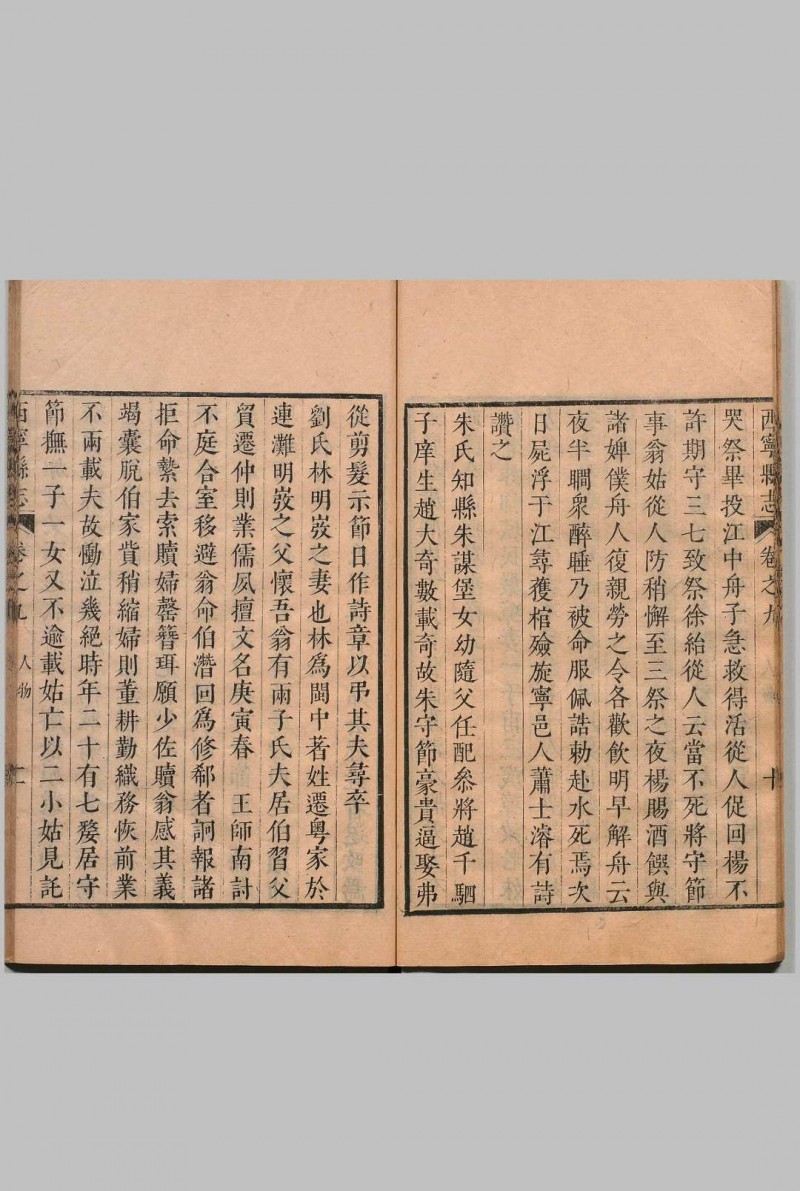 西寧縣志
卷之九
十
哭祭畢投江中舟子急救得活從人促回楊不
許期守三七致祭徐紿從人云當不死將守節
事翁姑從人防稍懈至三祭之夜楊賜酒饌與
諸婢僕舟人復親勞之令各歡飲明早解舟云
夜半瞯衆醉睡乃被命服佩誥勅赴水死焉次
日屍浮于江尋獲棺殮旋寧邑人蕭士濬有詩
讚之
朱氏知縣朱謀㙅女幼隨父任配叅將趙千駟
子庠生趙大奇數載奇故朱守節豪貴逼娶弗
從剪髮示節日作詩章以弔其夫尋卒
劉氏林明㟽之妻也林爲閩中著姓遷粵家於
連灘明㟽之父懷吾翁有兩子氏夫居伯習父
貿遷仲則業儒夙擅文名庚寅春 王師南討
不庭合室移避翁命伯潛回爲修郗者詗報諸
拒命縶去索贖婦罄簪珥願少佐贖翁感其義
竭囊脫伯家貲稍縮婦則董耕勤織務恢前業
不兩載夫故慟泣幾絕時年二十有七嫠居守
節撫一子一女又不逾載姑亡以二小姑見託
西寧縣志
卷之九
人物